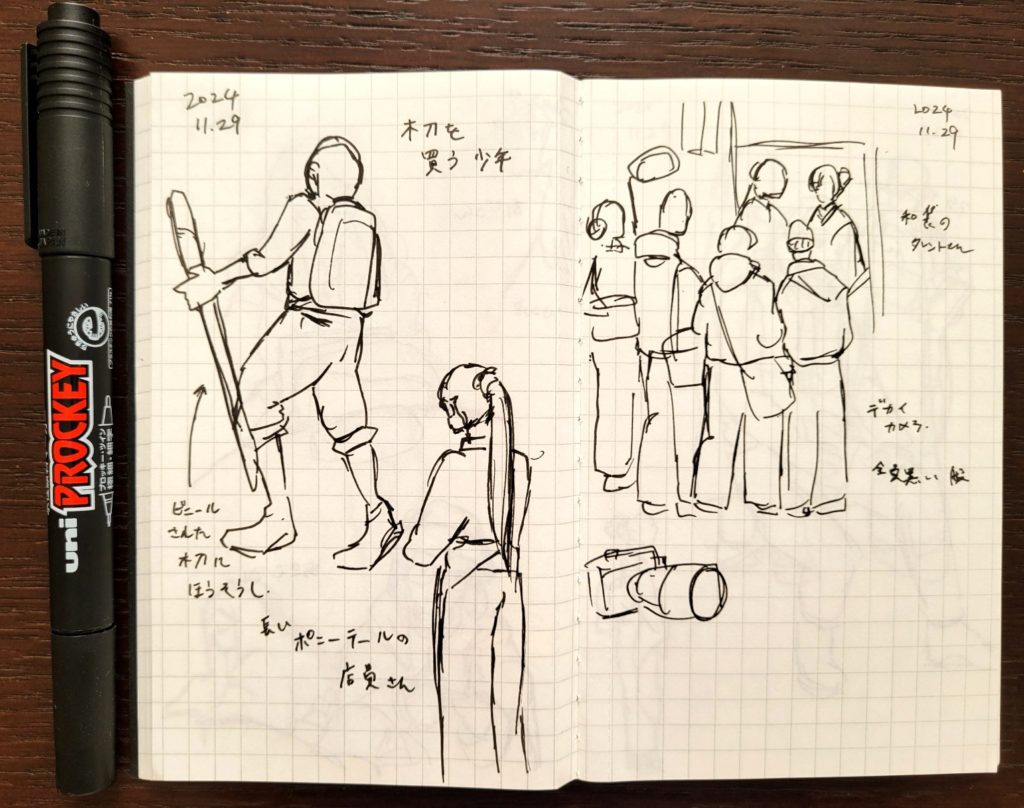 2024
11.29
木刀を
買う少年
ビニール
さんた
木刀に
ほうそうし.
長い
ポニーテールの
店員さん
2024
11.29
和装の
タレントさん
デカイ
カメラ.
全員黒い服
uni PROCKEY
プロッキー・ツイン